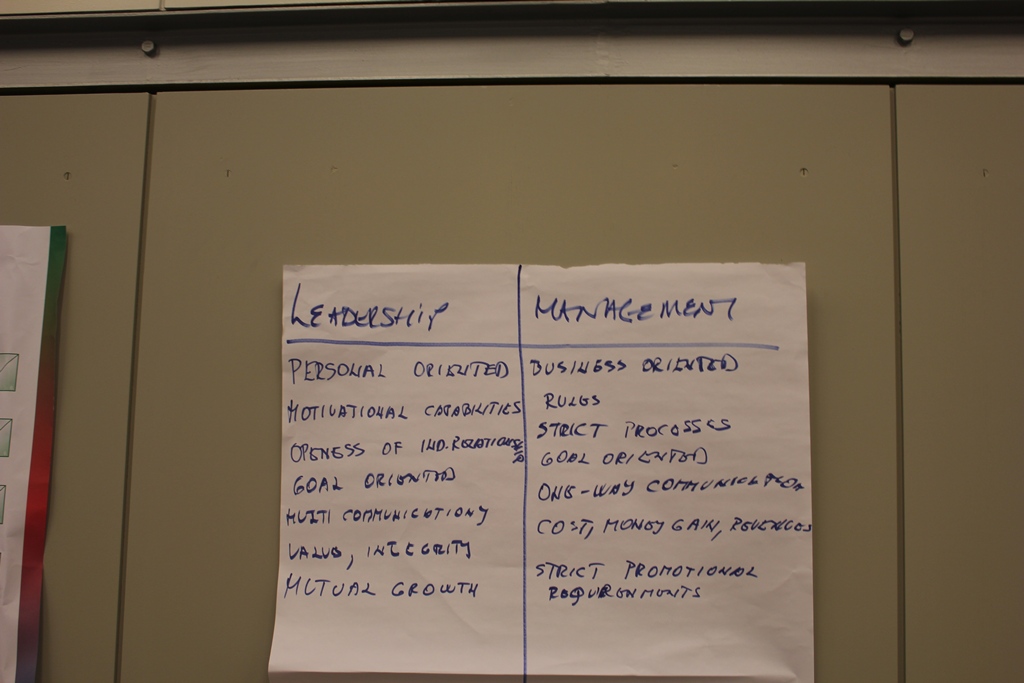 LEADERSHIP
PERSONAL ORIENTED
MOTIVATIONAL CAPABILITIES
OPENESS OF IND. RELATIONSHIP
GOAL ORIENTED
MULTI COMMUNICATION
VALUE, INTEGRITY
MUTUAL GROWTH
MANAGEMENT
BUSINESS ORIENTED
RULES
STRICT PROCESSES
GOAL ORIENTED
ONE-WAY COMMUNICATION
COST, MONEY GAIN, REVENUES
STRICT PROMOTIONAL
REQUIREMENTS